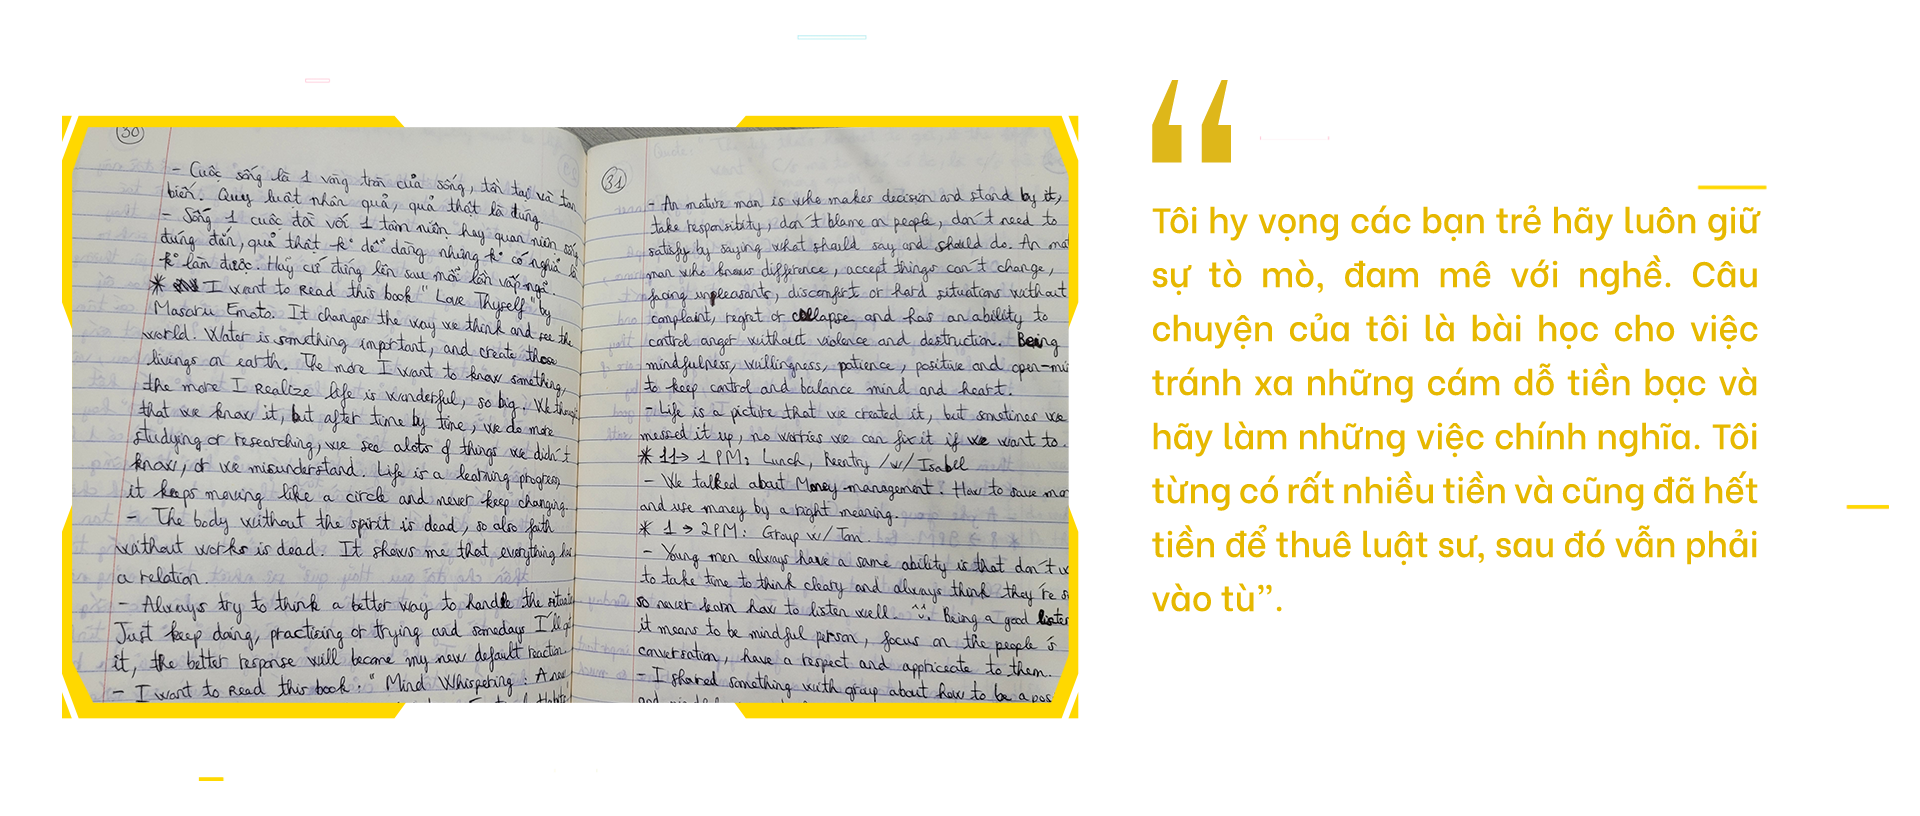 30
- Cuộc sống là 1 vòng tròn của sống, tồn tại và tan
biến. Quy luật nhân quả, quả thật là đúng.
- Sống 1 cuộc đời với 1 tâm niệm hay quan niệm sống
đúng đắn, quả thật kº dễ dàng nhưng kº có nghĩa là
kº làm được. Hãy cứ đứng lên sau mỗi lần vấp ngã.
* I want to Read this book "Love Thyself" by
Masaru Emoto. It changes the way we think and see the
world. Water is something important, and create those
livings on earth. The more I want to know something,
the more I Realize life is wonderful, so big. We thought
that we know it, but after time by time, we do more
studying or researching, we see alots of things we didn't
know, or we misunderstand. Life is a learning progress,
it keeps moving like a circle and never keep changing.
- The body without the spirit is dead, so also faith
without works is dead. It shows me that everything has
a relation.
- Always try to think a better way to handle the situation
Just keep doing, practising or trying and somedays I'll get
it, the better response will become my new default reaction.
- I want to Read this book: "Mind Whispering: A new
31
- An mature man is who makes decision and stand by it,
take responsibity, don't blame on people, don't need to
satisfy by saying what should say and should do. An mat
man who knows difference, accept things can't change,
facing unpleasants, discomfort or hard situations without
complaint, regret or collapse and has an ability to
control anger without violence and destruction. Being
mindfulness, willingness, patience, positive and open-mi
to keep control and balance mind and heart.
- Life is a picture that we created it, but sometimes we
messed it up, no worries we can fix it if we want to.
* 11→ 1 PM: Lunch, Reentry /w/ Isabel
- We talked about Money management. How to save mo
and use money by a right meaning.
* 1 → 2PM: Group w/ Tom.
- Young men always have a same ability is that don't w
to take time to think cleary and always think they're s
so never learn how to listen well. Being a good listen
it means to be mindful person, focus on the people's
conversation, have a respect and appriceate to them.
- I shared something with group about how to be a pos
“
Tôi hy vọng các bạn trẻ hãy luôn giữ
sự tò mò, đam mê với nghề. Câu
chuyện của tôi là bài học cho việc
tránh xa những cám dỗ tiền bạc và
hãy làm những việc chính nghĩa. Tôi
từng có rất nhiều tiền và cũng đã hết
tiền để thuê luật sư, sau đó vẫn phải
vào tù”.